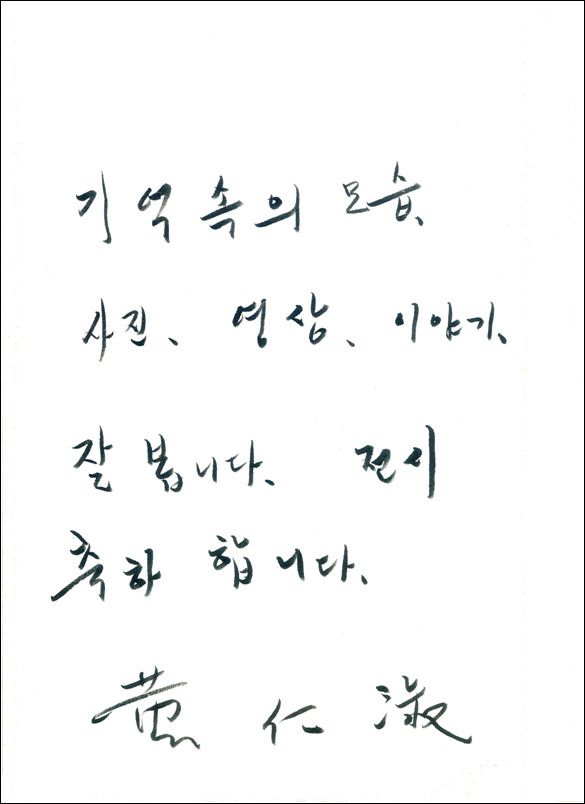 기억속의 모습,
사진, 영상, 이야기,
잘 봅니다. 전시
축하 합니다.
黃仁淑